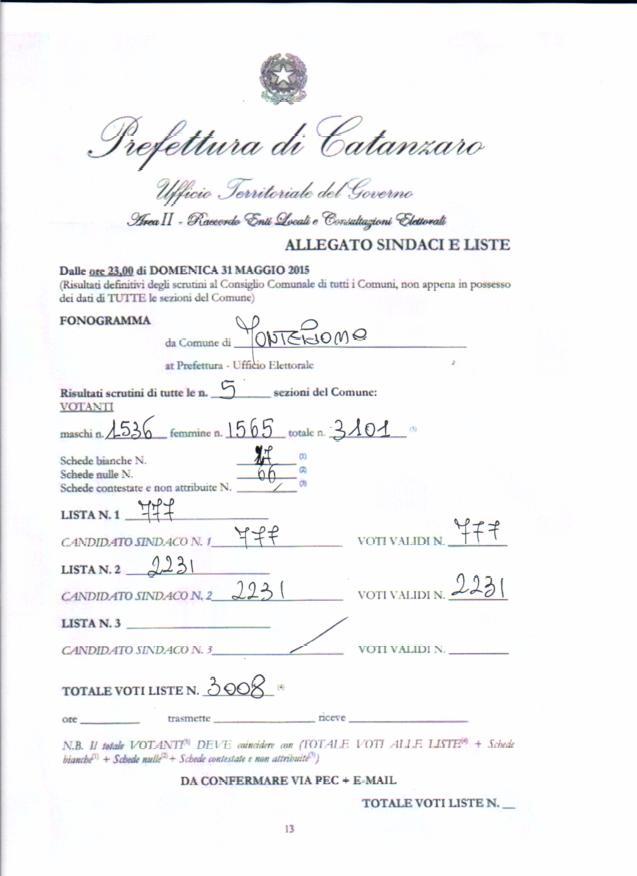 Prefettura di Catanzaro
Ufficio Territoriale del Governo
Area II - Raccordo Enti Locali e Consultazioni Elettorali
ALLEGATO SINDACI E LISTE
Dalle ore 23,00 di DOMENICA 31 MAGGIO 2015
(Risultati definitivi degli scrutini al Consiglio Comunale di tutti i Comuni, non appena in possesso
dei dati di TUTTE le sezioni del Comune)
FONOGRAMMA
da Comune di MONTEPAONE
at Prefettura - Ufficio Elettorale
Risultati scrutini di tutte le n. 5 sezioni del Comune:
VOTANTI
maschi n. 1536 femmine n. 1565 totale n. 3101 (5)
Schede bianche N. 27 (1)
Schede nulle N. 66 (2)
Schede contestate e non attribuite N. / (3)
LISTA N. 1 777
CANDIDATO SINDACO N. 1 777 VOTI VALIDI N. 777
LISTA N. 2 2231
CANDIDATO SINDACO N. 2 2231 VOTI VALIDI N. 2231
LISTA N. 3
CANDIDATO SINDACO N. 3 / VOTI VALIDI N.
TOTALE VOTI LISTE N. 3008 (4)
ore trasmette riceve
N.B. Il totale VOTANTI(5) DEVE coincidere con (TOTALE VOTI ALLE LISTE(4) + Schede
bianche(1) + Schede nulle(2) + Schede contestate e non attribuite(3))
DA CONFERMARE VIA PEC + E-MAIL
TOTALE VOTI LISTE N. __
13